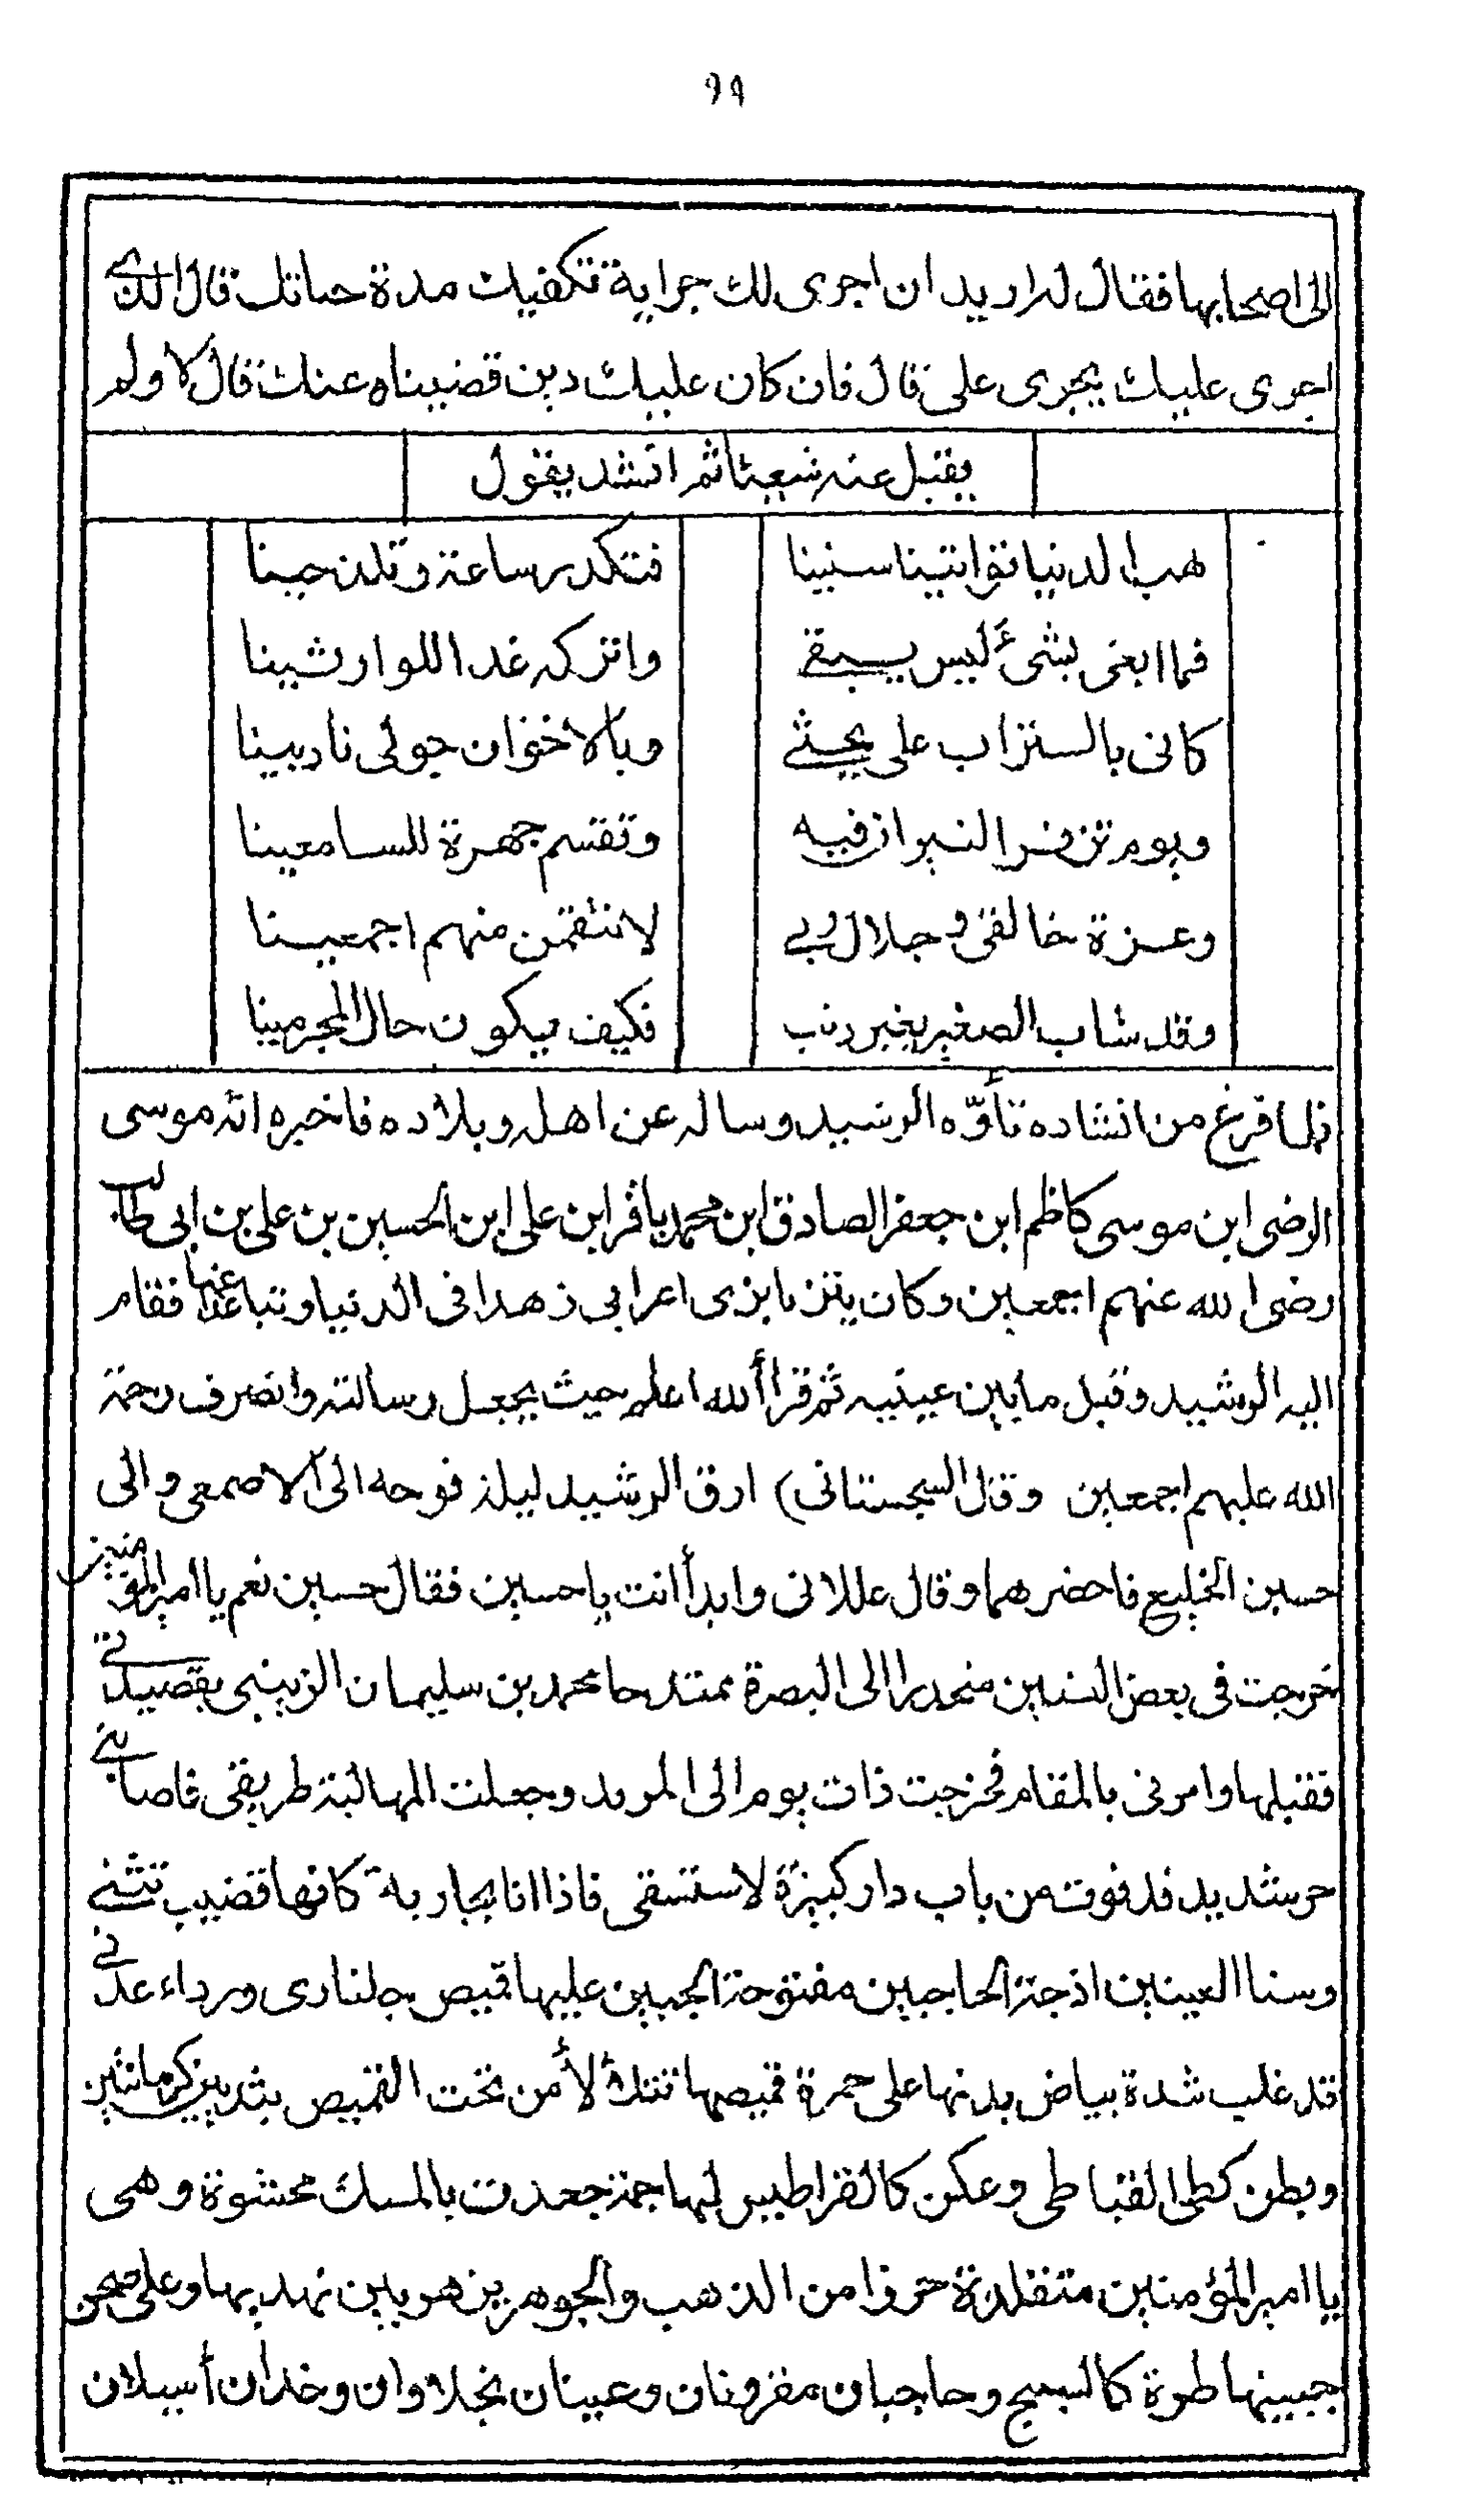 ٩٩
الى اصحابها فقال له اريد ان اجرى لك جراية تكفيك مدة حياتك قال الذى
اجرى عليك يجرى على قال فان كان عليك دين قضيناه عنك قال لا ولم
يقبل عنه شيئا ثم انشد يقول
هب الدنيا تواتينا سنينا فتكدر ساعة وتلذ حينا
فما ابغى بشئ ليس يبقى واتركه غدا للوارثينا
كانى بالتراب على يحثى وبالاخوان حولى نادبينا
ويوم تزفر النيران فيه وتقسم جهرة للسامعينا
وعزة خالقى وجلال ربى لانتقمن منهم اجمعينا
وقد شاب الصغير بغير ذنب فكيف يكون حال المجرمينا
فلما فرغ من انشاده تأوّه الرشيد وساله عن اهله وبلاده فاخبره انه موسى
الرضى ابن موسى كاظم ابن جعفر الصادق ابن محمد باقر ابن على ابن الحسين بن على بن ابى طالب
رضى الله عنهم اجمعين وكان يتزيا بزى اعرابى زهدا فى الدنيا وتباعدا عنها فقام
اليه الرشيد وقبل مابين عينيه ثم قرأ الله اعلم حيث يجعل رسالته وانصرف رحمة
الله عليهم اجمعين وقال السجستانى) ارق الرشيد ليلة فوجه الى الاصمعى والى
حسين الخليع فاحضرهما وقال عللانى وابدأ انت ياحسين فقال حسين نعم يا امير المؤمنين
خرجت فى بعض السنين منحدرا الى البصرة ممتدحا محمد بن سليمان الزينبى بقصيدتى
فقبلها وامرنى بالمقام فخرجت ذات يوم الى المربد وجعلت المهالبة طريقى فاصابنى
حر شديد فدنوت من باب دار كبيرة لاستسقى فاذا انا بجارية كانها قضيب تتثنى
وسنا العينين ازجة الحاجبين مفتوحة الجبين عليها قميص جلنارى ورداء عدنى
قد غلب شدة بياض بدنها على حمرة قميصها تتلألأ من تحت القميص بثديين كرمانتين
وبطن كطى القباطى وعكن كالقراطيس لها جمة جعدت بالمسك محشوة وهى
يا امير المؤمنين متقلدة حرزا من الذهب والجوهر يزهر بين نهديها وعلى صحن
جبينها طرة كالسبج وحاجبان مقرونان وعينان نجلاوان وخدان أسيلان